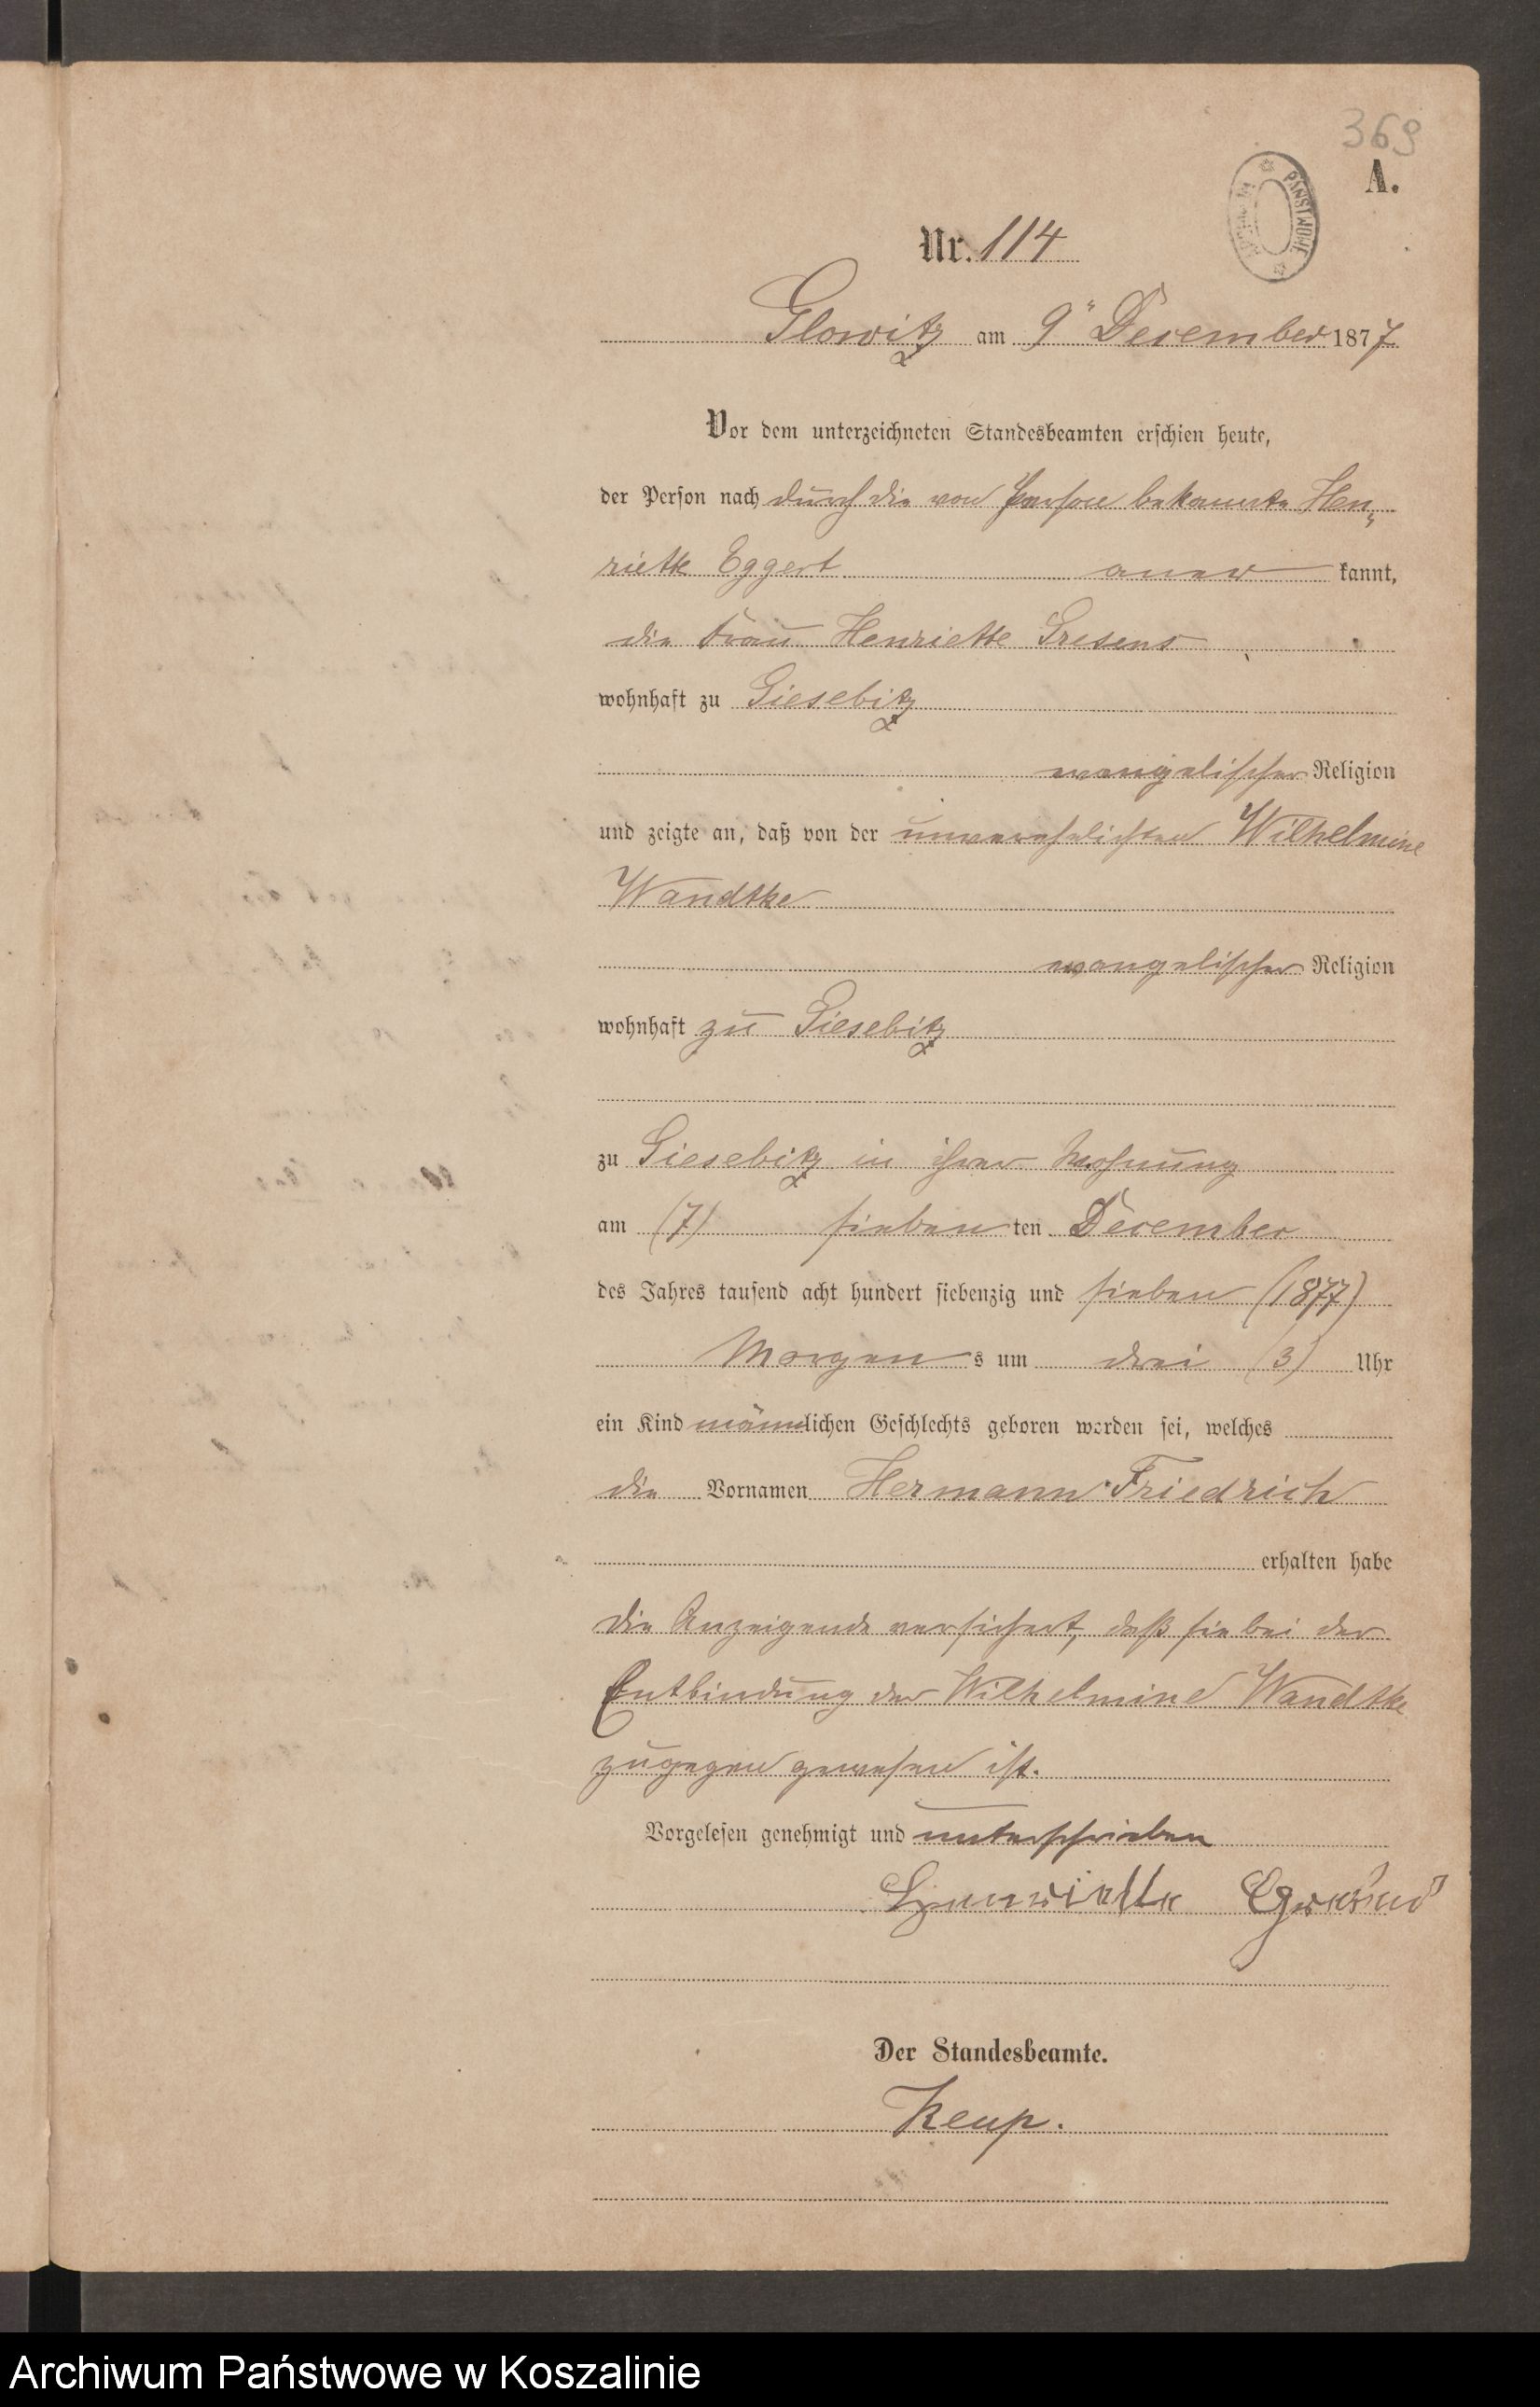 369
A.
PAŃSTWOWE
Nr. 114
Glowitz am 9" December 1877
Vor dem unterzeichneten Standesbeamten erschien heute,
der Person nach durch die von Person bekannte Hen„
riette Eggert aner kannt,
die Frau Henriette Gresens
wohnhaft zu Giesebitz
evangelischer Religion
und zeigte an, daß von der unverehelichten Wilhelmine
Wandtke
evangelischer Religion
wohnhaft zu Giesebitz
zu Giesebitz in ihrer Wohnung
am (7) sieben ten December
des Jahres tausend acht hundert siebenzig und sieben (1877)
Morgen s um drei (3) Uhr
ein Kind männlichen Geschlechts geboren worden sei, welches
die Vornamen Hermann Friedrich
erhalten habe
die Anzeigende versichert, daß sie bei der
Entbindung der Wilhelmine Wandtke
zugegen gewesen ist.
Vorgelesen genehmigt und unterschrieben
Henriette
Der Standesbeamte.
Keup.
Archiwum Państwowe w Koszalinie